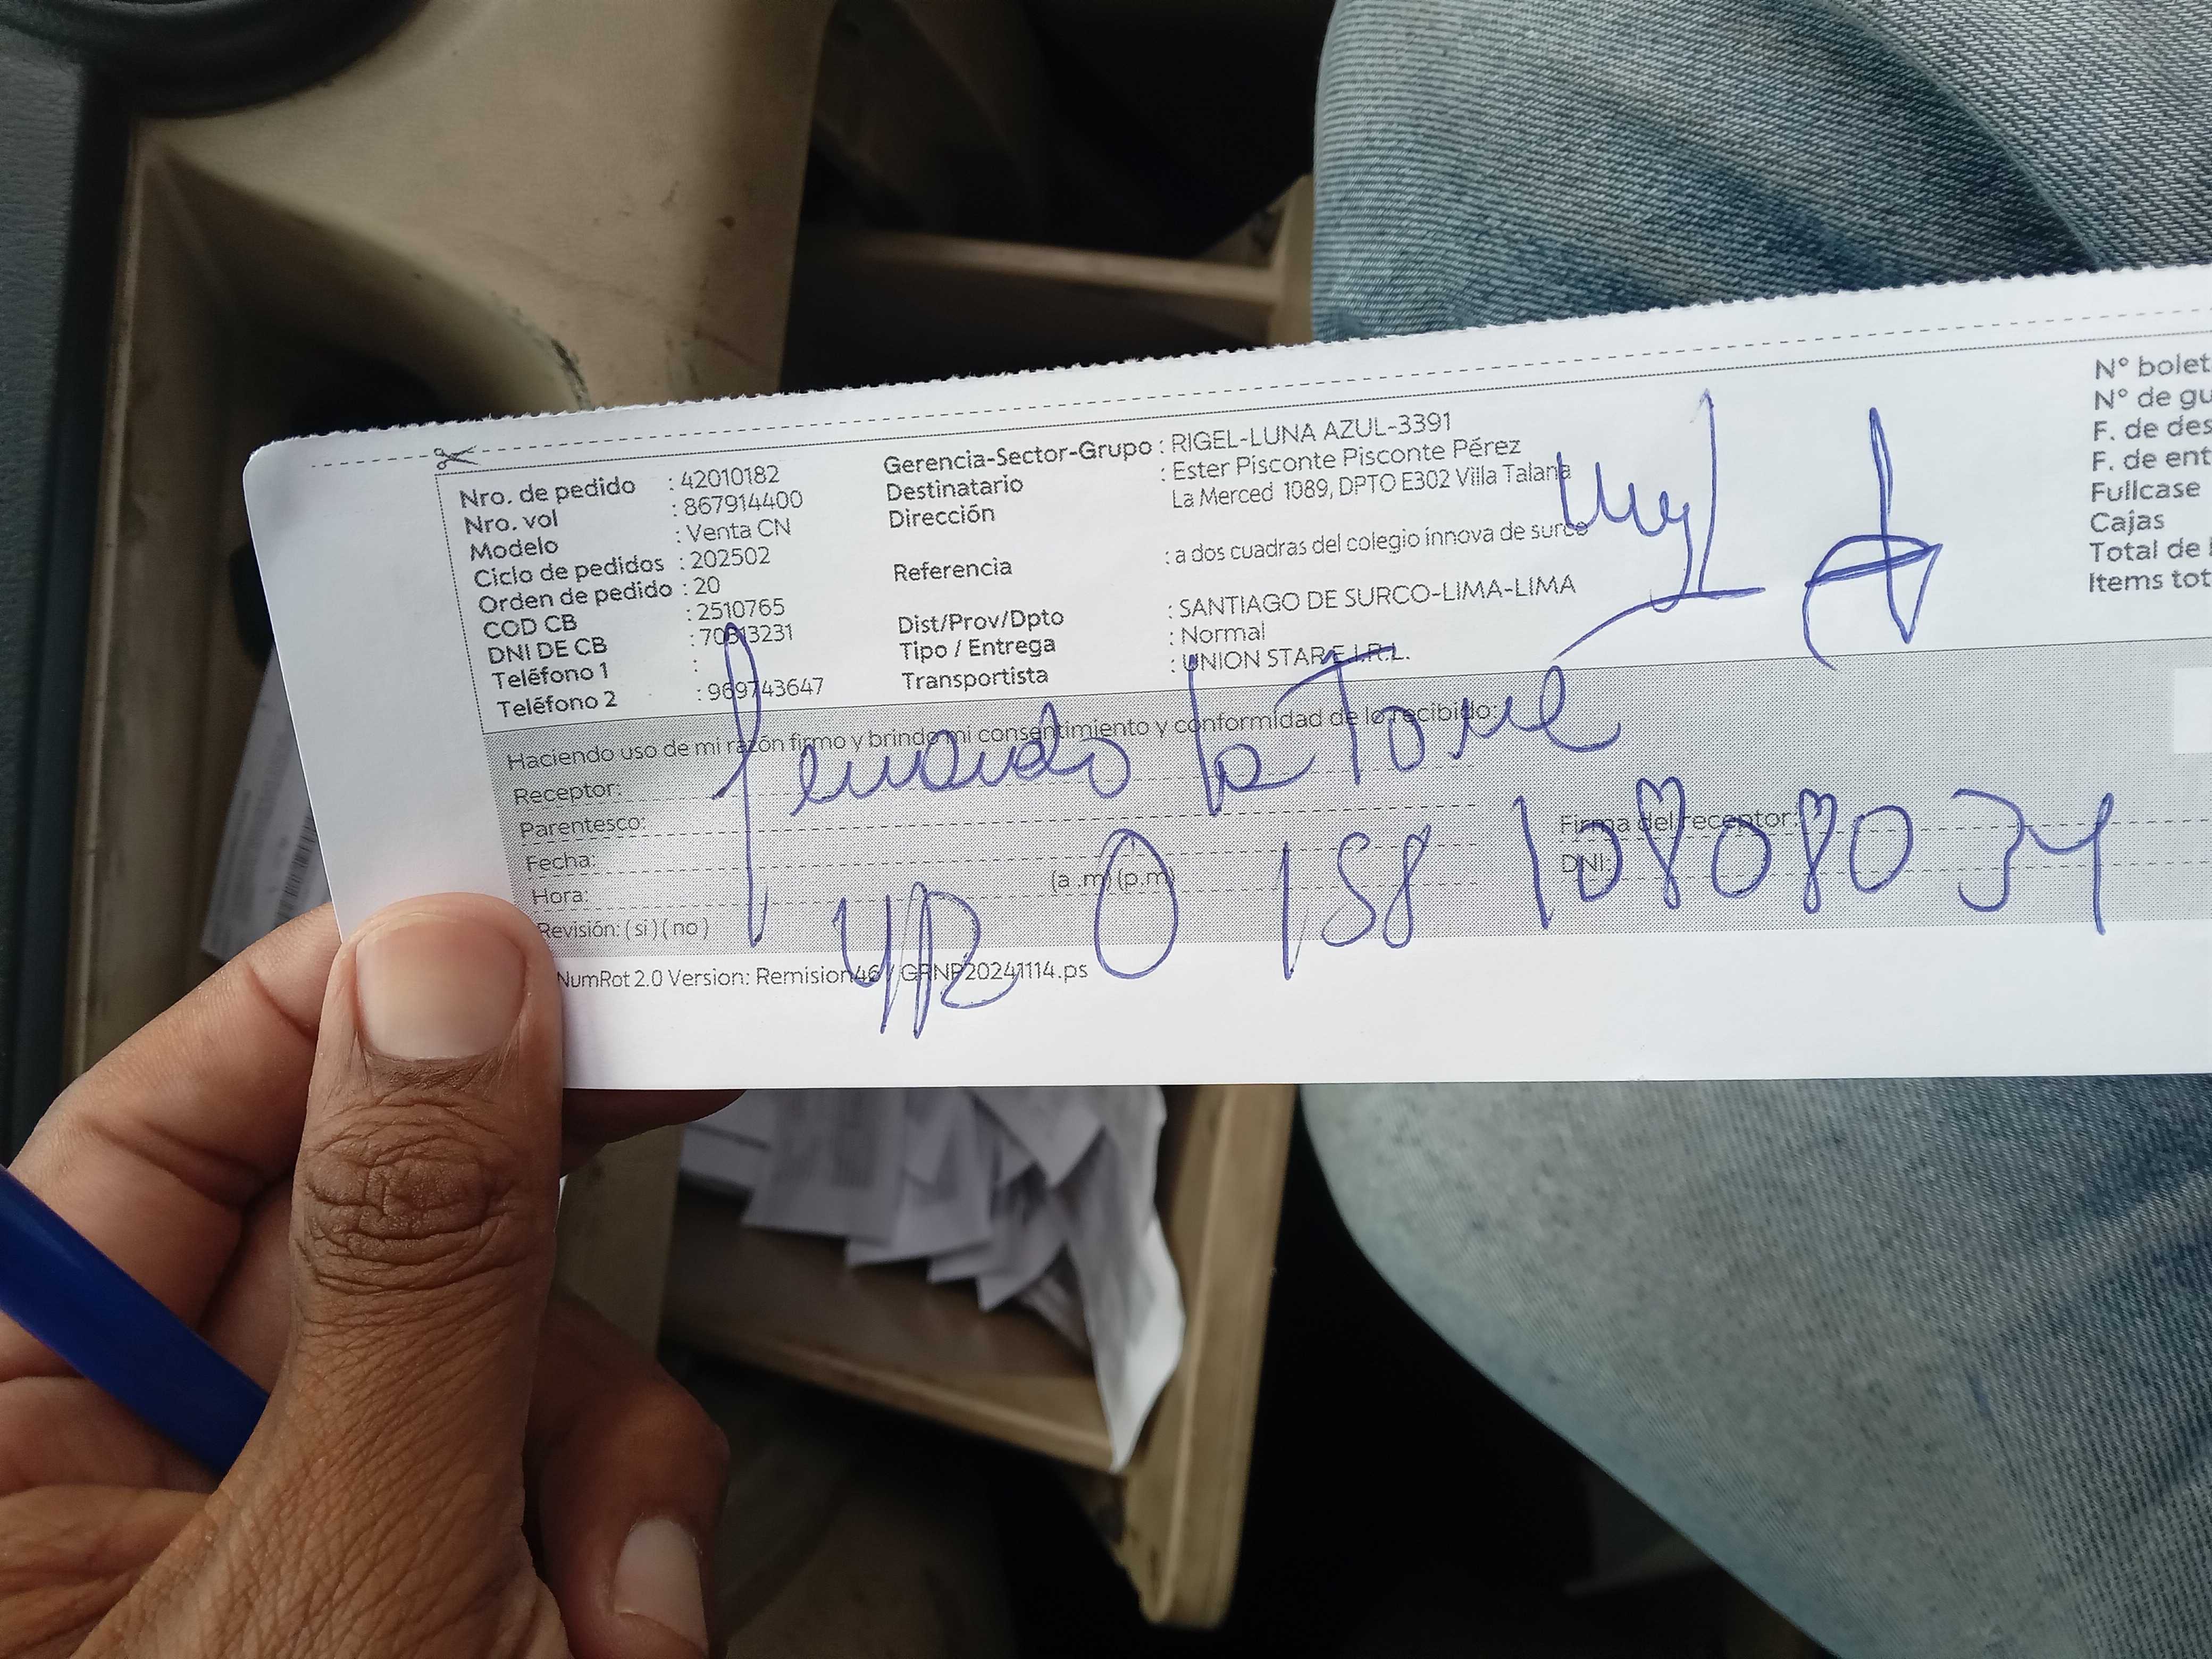 Nro. de pedido : 42010182
Nro. vol : 867914400
Modelo : Venta CN
Ciclo de pedidos : 202502
Orden de pedido : 20
COD CB : 2510765
DNI DE CB : 70313231
Teléfono 1 :
Teléfono 2 : 969743647
Gerencia-Sector-Grupo : RIGEL-LUNA AZUL-3391
Destinatario : Ester Pisconte Pisconte Pérez
Dirección La Merced 1089, DPTO E302 Villa Talana
Referencia : a dos cuadras del colegio innova de surco
Dist/Prov/Dpto : SANTIAGO DE SURCO-LIMA-LIMA
Tipo / Entrega : Normal
Transportista : UNION STAR E.I.R.L.
Nº bolet
Nº de gu
F. de des
F. de ent
Fullcase
Cajas
Total de
Items tot
Haciendo uso de mi razón firmo y brindo mi consentimiento y conformidad de lo recibido:
Receptor:
Fernando la Torre
Parentesco:
Fecha:
Hora: (a .m) (p.m)
Revisión: ( si ) ( no )
Firma del receptor:
DNI:
10808034
158
NumRot 2.0 Version: Remision46 / GRNP20241114.ps